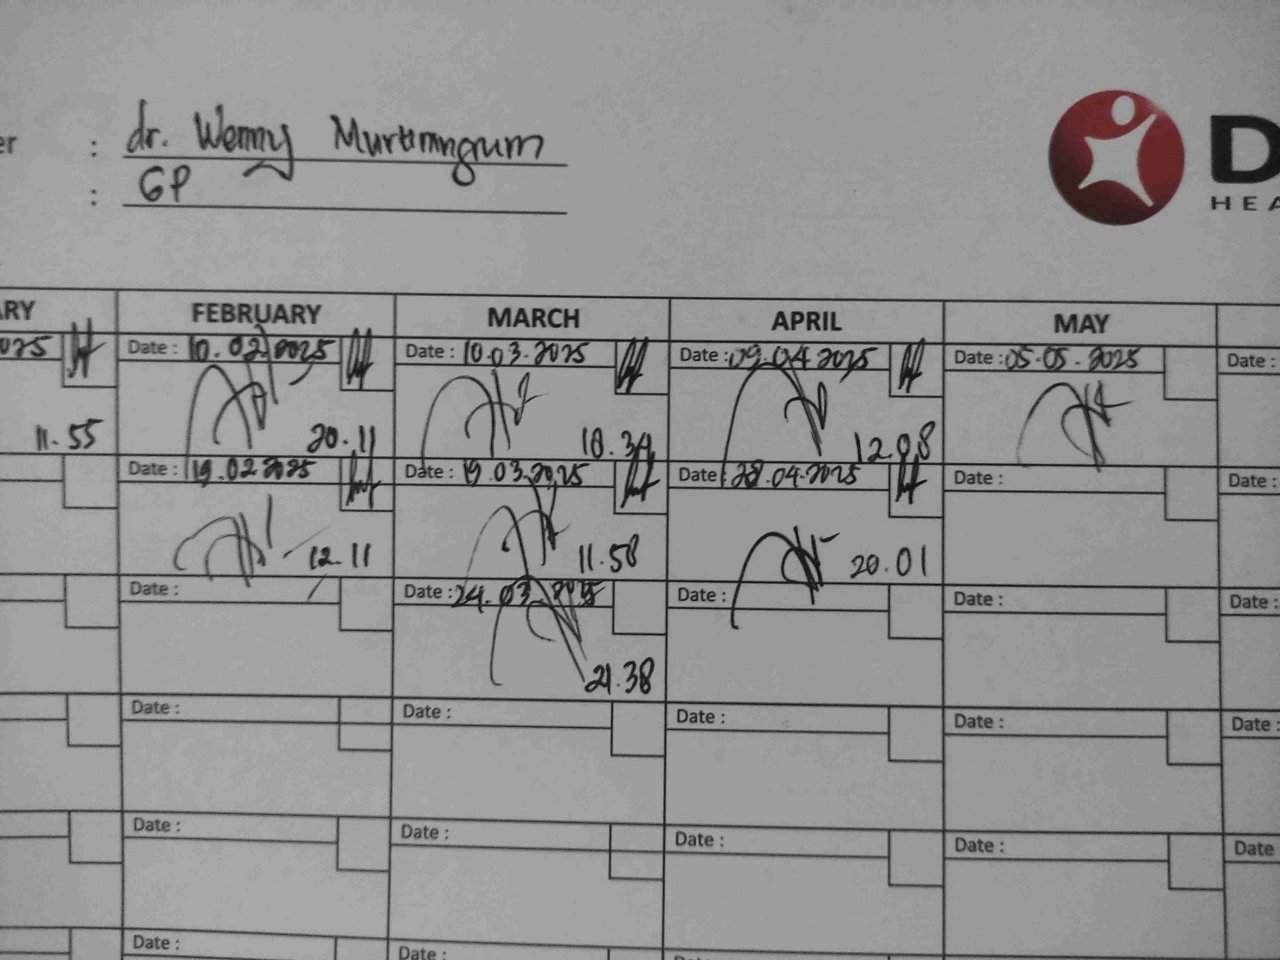 er : dr. Wenny Murtiningrum
: GP
D
HEA
ARY FEBRUARY MARCH APRIL MAY
025 Date : 10.02.2025 Date : 10.03.2025 Date : 09.04.2025 Date : 05.05.2025 Date :
11.55 20.11 18.34 12.08
Date : 19.02.2025 Date : 19.03.2025 Date : 28.04.2025 Date : Date :
12.11 11.58 20.01
Date : Date : 24.03.2025 Date : Date : Date :
21.38
Date : Date : Date : Date : Date :
Date : Date : Date : Date : Date
Date : Date :